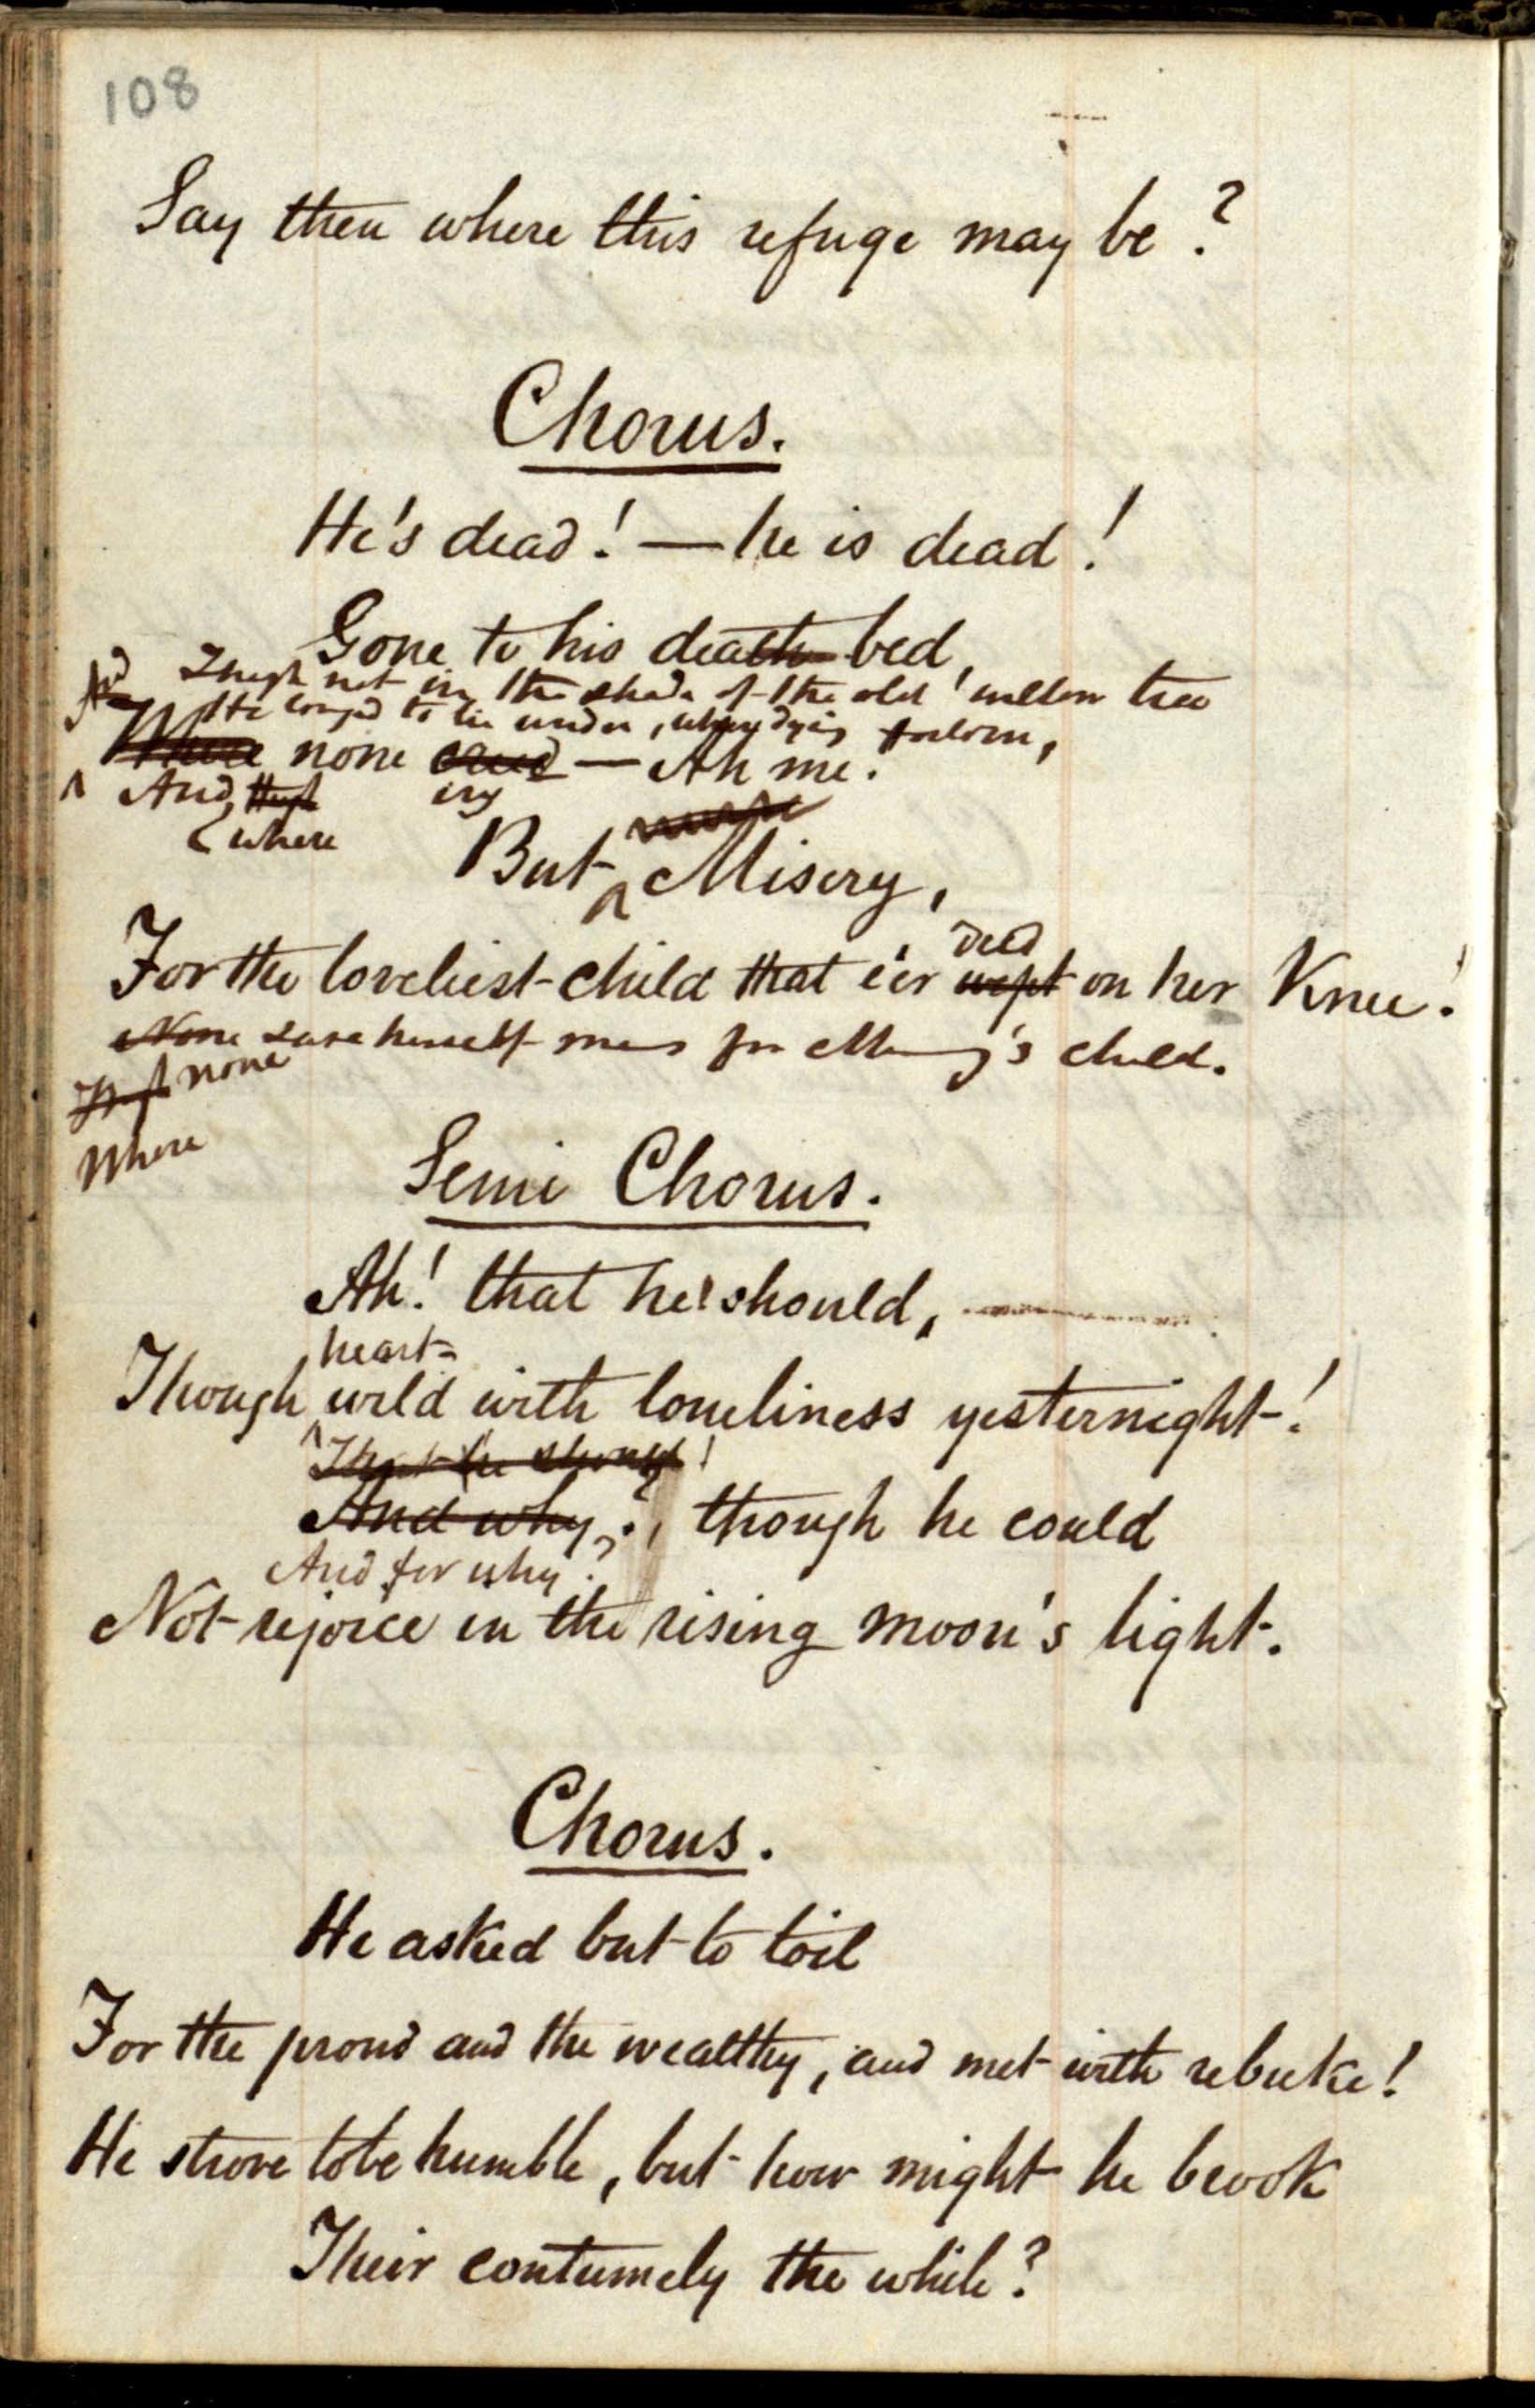 108
Say then where this refuge may be?
Chorus.
He's dead! — he is dead!
Gone to his death bed,
And Though not in the shade of the old willow tree
He longed to lie under, when dying forlorn,
Where none cried — Ah me!
And, though cry
where
But Misery,
died
For the loveliest child that e'er wept on her Knee!
None save herself for 's child.
Though none
Where
Semi Chorus.
Ah! that he should,
heart-
Though wild with loneliness yesternight!
That he should!
And why?, though he could
And for why?
Not rejoice in the rising moon's light.
Chorus.
He asked but to toil
For the proud and the wealthy, and met with rebuke!
He strove to be humble, but how might he brook
Their contumely the while?